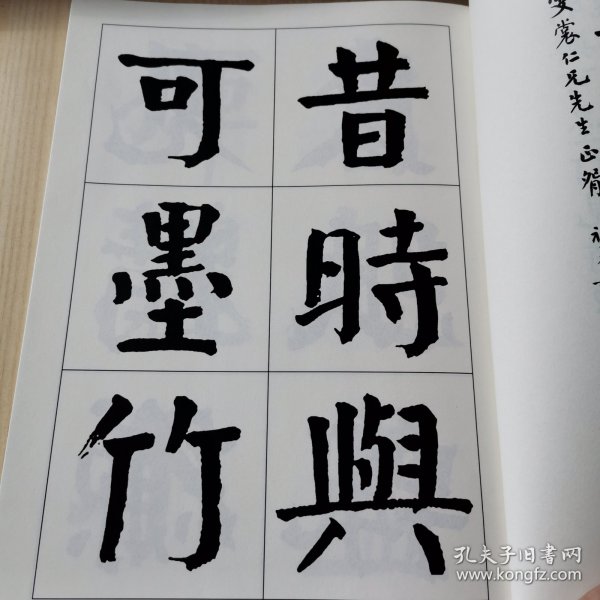 昔時與
可墨竹
仁兄先生正
孔夫子旧书网
www.kongfz.com